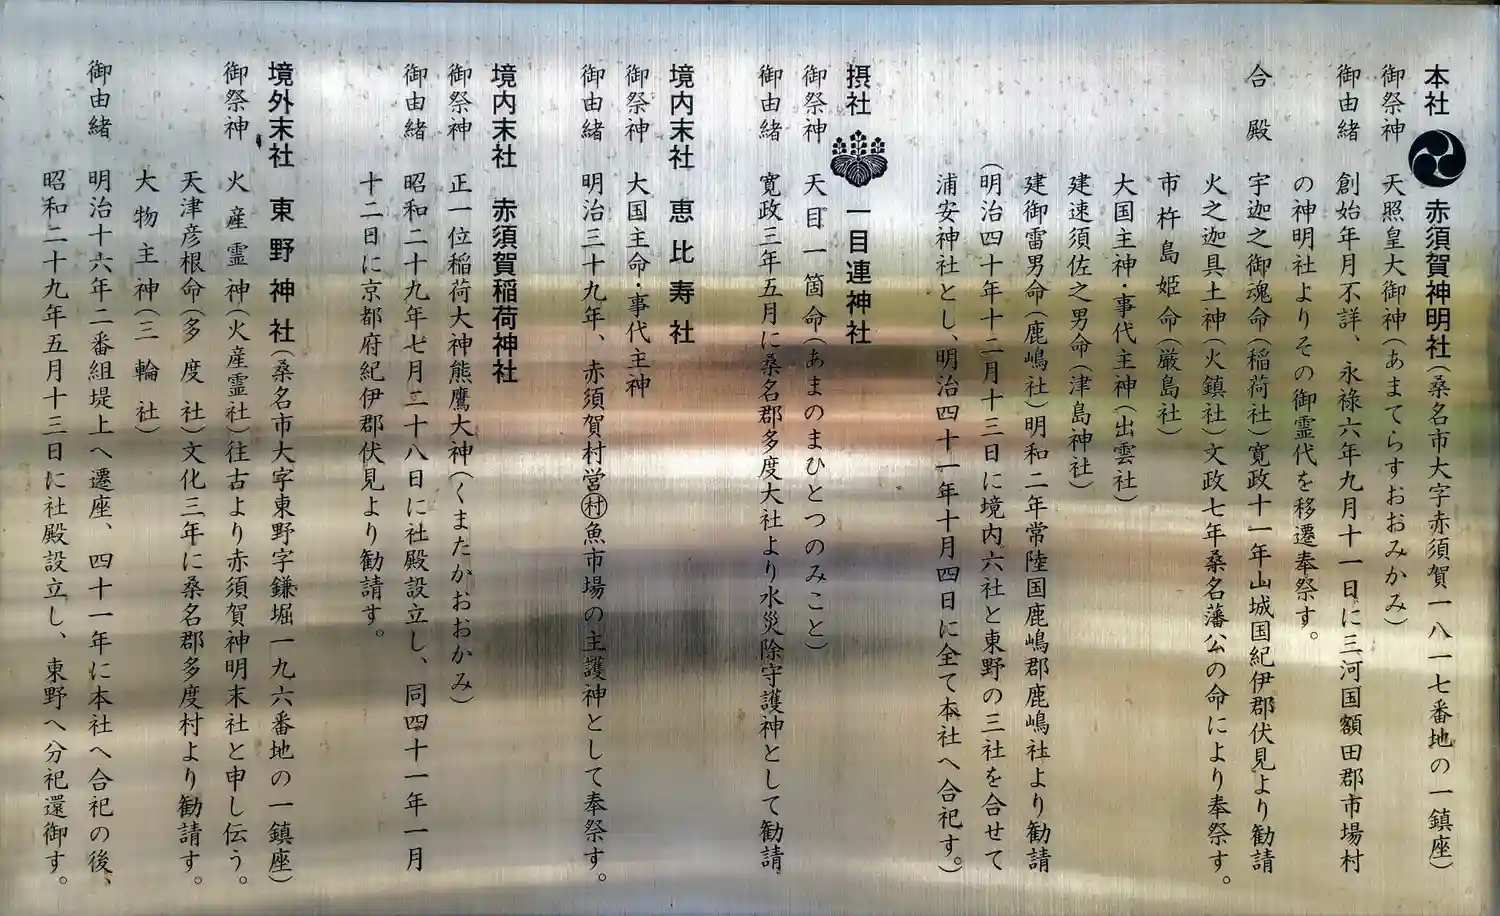 本社 赤須賀神明社(桑名市大字赤須賀一八一七番地の一鎮座)
御祭神 天照皇大御神(あまてらすおおみかみ)
御由緒 創始年月不詳、永禄六年九月十一日に三河国額田郡市場村
の神明社よりその御霊代を移遷奉祭す。
合殿 宇迦之御魂命(稲荷社)寛政十一年山城国紀伊郡伏見より勧請
火之迦具土神(火鎮社)文政七年桑名藩公の命により奉祭す。
市杵島姫命(厳島社)
大国主神・事代主神(出雲社)
建速須佐之男命(津島神社)
建御雷男命(鹿嶋社)明和二年常陸国鹿嶋郡鹿嶋社より勧請
(明治四十年十二月十三日に境内六社と東野の三社を合せて
浦安神社とし、明治四十一年十月四日に全て本社へ合祀す。)
摂社 一目連神社
御祭神 天目一箇命(あまのまひとつのみこと)
御由緒 寛政三年五月に桑名郡多度大社より水災除守護神として勧請
境内末社 恵比寿社
御祭神 大国主命・事代主神
御由緒 明治三十九年、赤須賀村営㊟魚市場の主護神として奉祭す。
境内末社 赤須賀稲荷神社
御祭神 正一位稲荷大神熊鷹大神(くまたかおおかみ)
御由緒 昭和二十九年七月二十八日に社殿設立し、同四十一年一月
十二日に京都府紀伊郡伏見より勧請す。
境外末社 東野神社(桑名市大字東野字鎌堀一九六番地の一鎮座)
御祭神 火産霊神(火産霊社)往古より赤須賀神明末社と申し伝う。
天津彦根命(多度社)文化三年に桑名郡多度村より勧請す。
大物主神(三輪社)
御由緒 明治十六年二番組堤上へ遷座、四十一年に本社へ合祀の後、
昭和二十九年五月十三日に社殿設立し、東野へ分祀還御す。